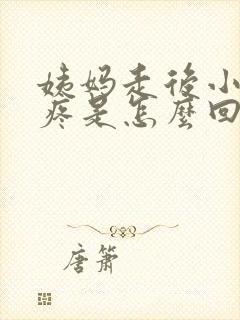 姨妈走后小
疼是怎麼回
唐箫